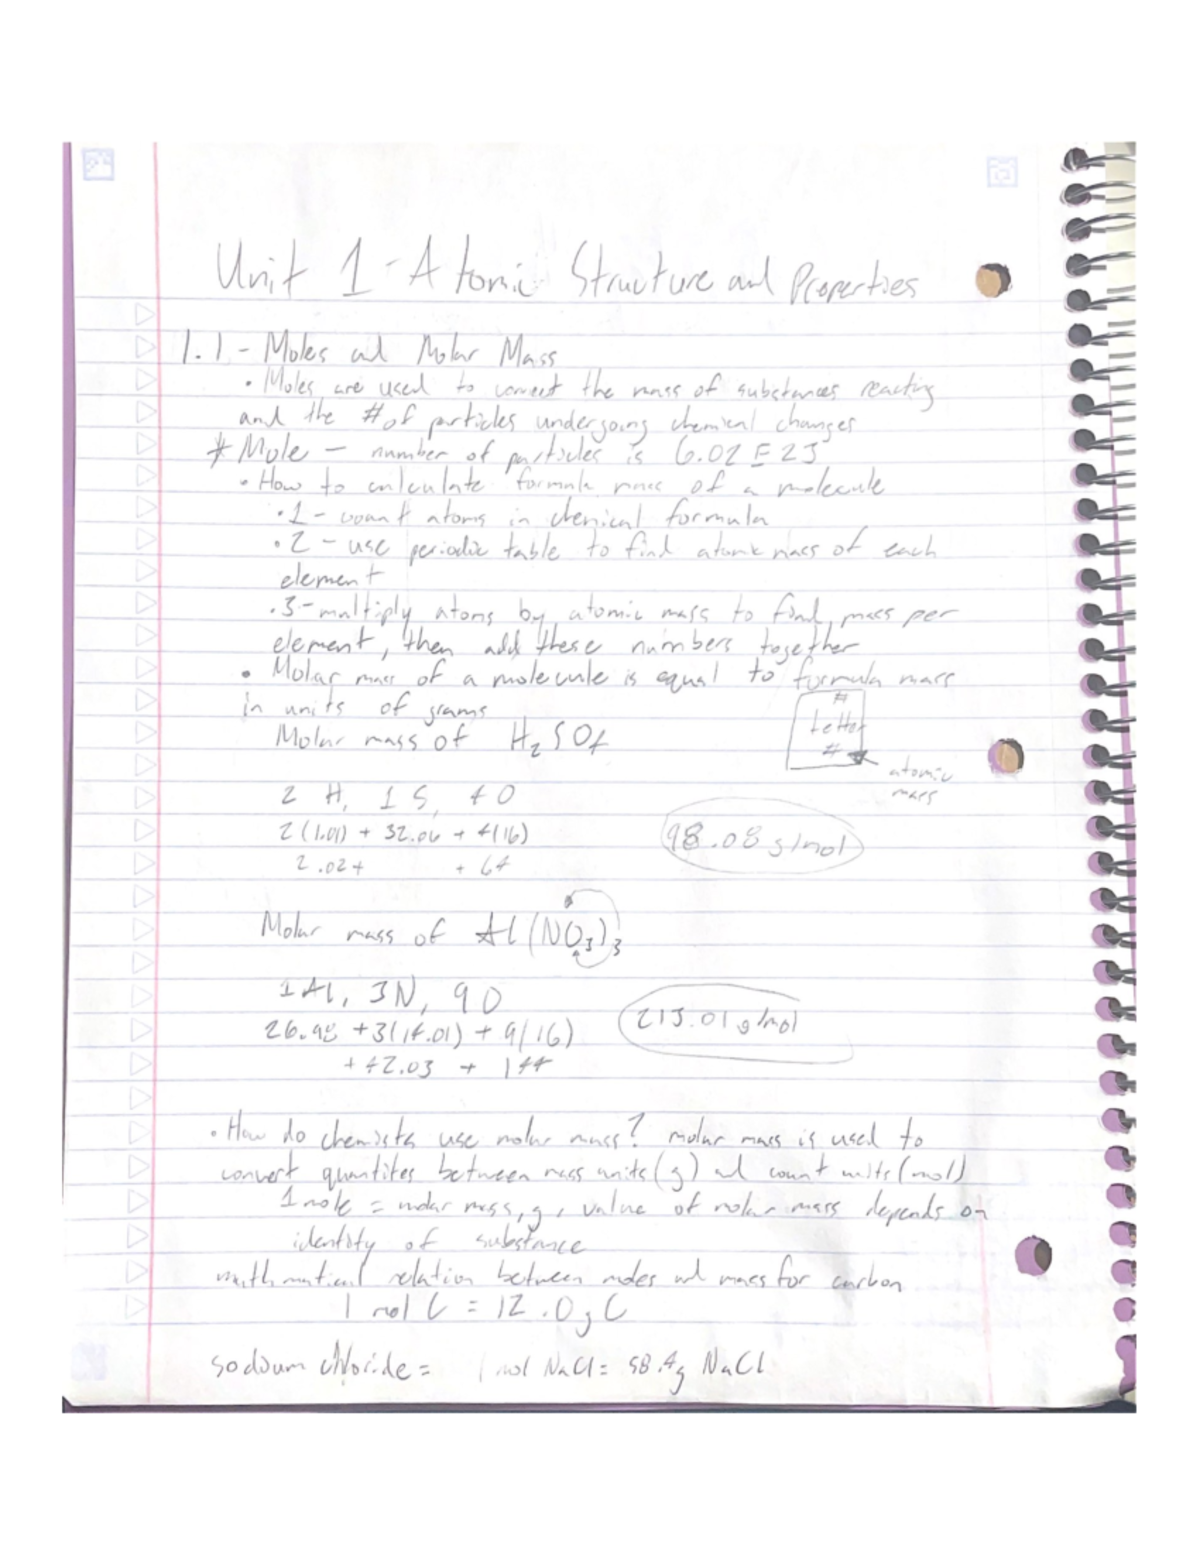 Unit 1 - Atomic Structure and Properties
1.1 - Moles and Molar Mass
• Moles are used to connect the mass of substances reacting
and the # of particles undergoing chemical changes
* Mole - number of particles is 6.02 E 23
• How to calculate formula mass of a molecule
• 1 - count atoms in chemical formula
• 2 - use periodic table to find atomic mass of each
element
• 3 - multiply atoms by atomic mass to find mass per
element, then add these numbers together
• Molar mass of a molecule is equal to formula mass
in units of grams
#
Letter
#
atomic
mass
Molar mass of H₂SO₄
2 H, 1 S, 4 O
2(1.01) + 32.06 + 4(16)
2.02 + + 64
98.08 g/mol
Molar mass of Al(NO₃)₃
1 Al, 3N, 9 O
26.98 + 3(14.01) + 9(16)
+ 42.03 + 144
213.01 g/mol
• How do chemists use molar mass? molar mass is used to
convert quantites between mass units (g) and count units (mol)
1 mole = molar mass, g, value of molar mass depends on
identity of substance
mathmatical relation between moles and mass for carbon
1 mol C = 12.0 g C
sodium chloride = 1 mol NaCl = 58.4g NaCl